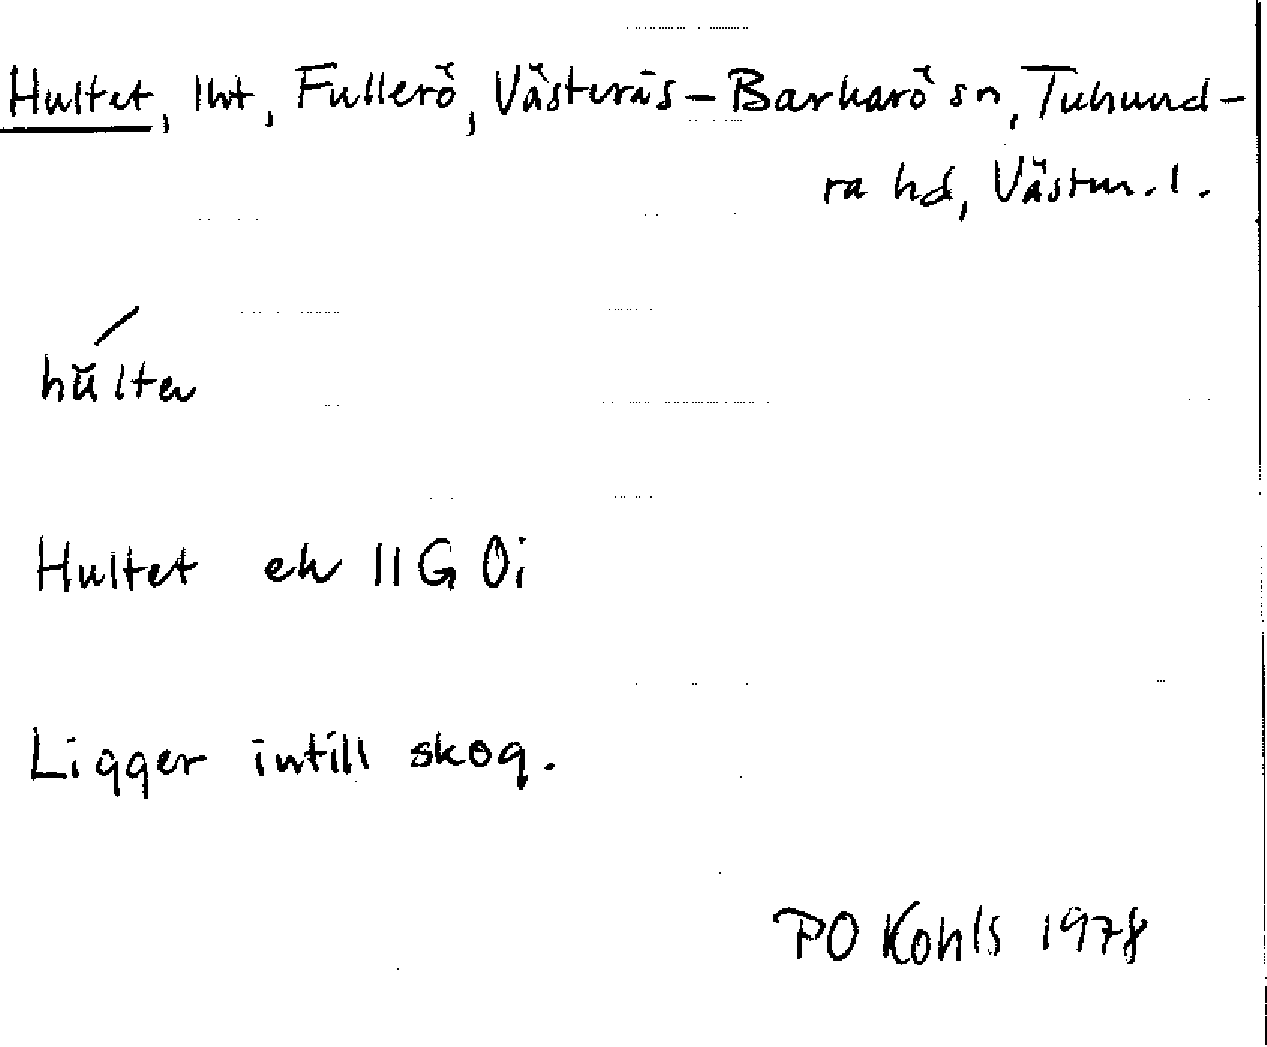 Hultet, lht, Fullerö, Västerås-Barkarö sn, Tuhund-
ra hd, Västm.l.
hŭltə
Hultet ek 11G 0i
Ligger intill skog.
PO Kohls 1978